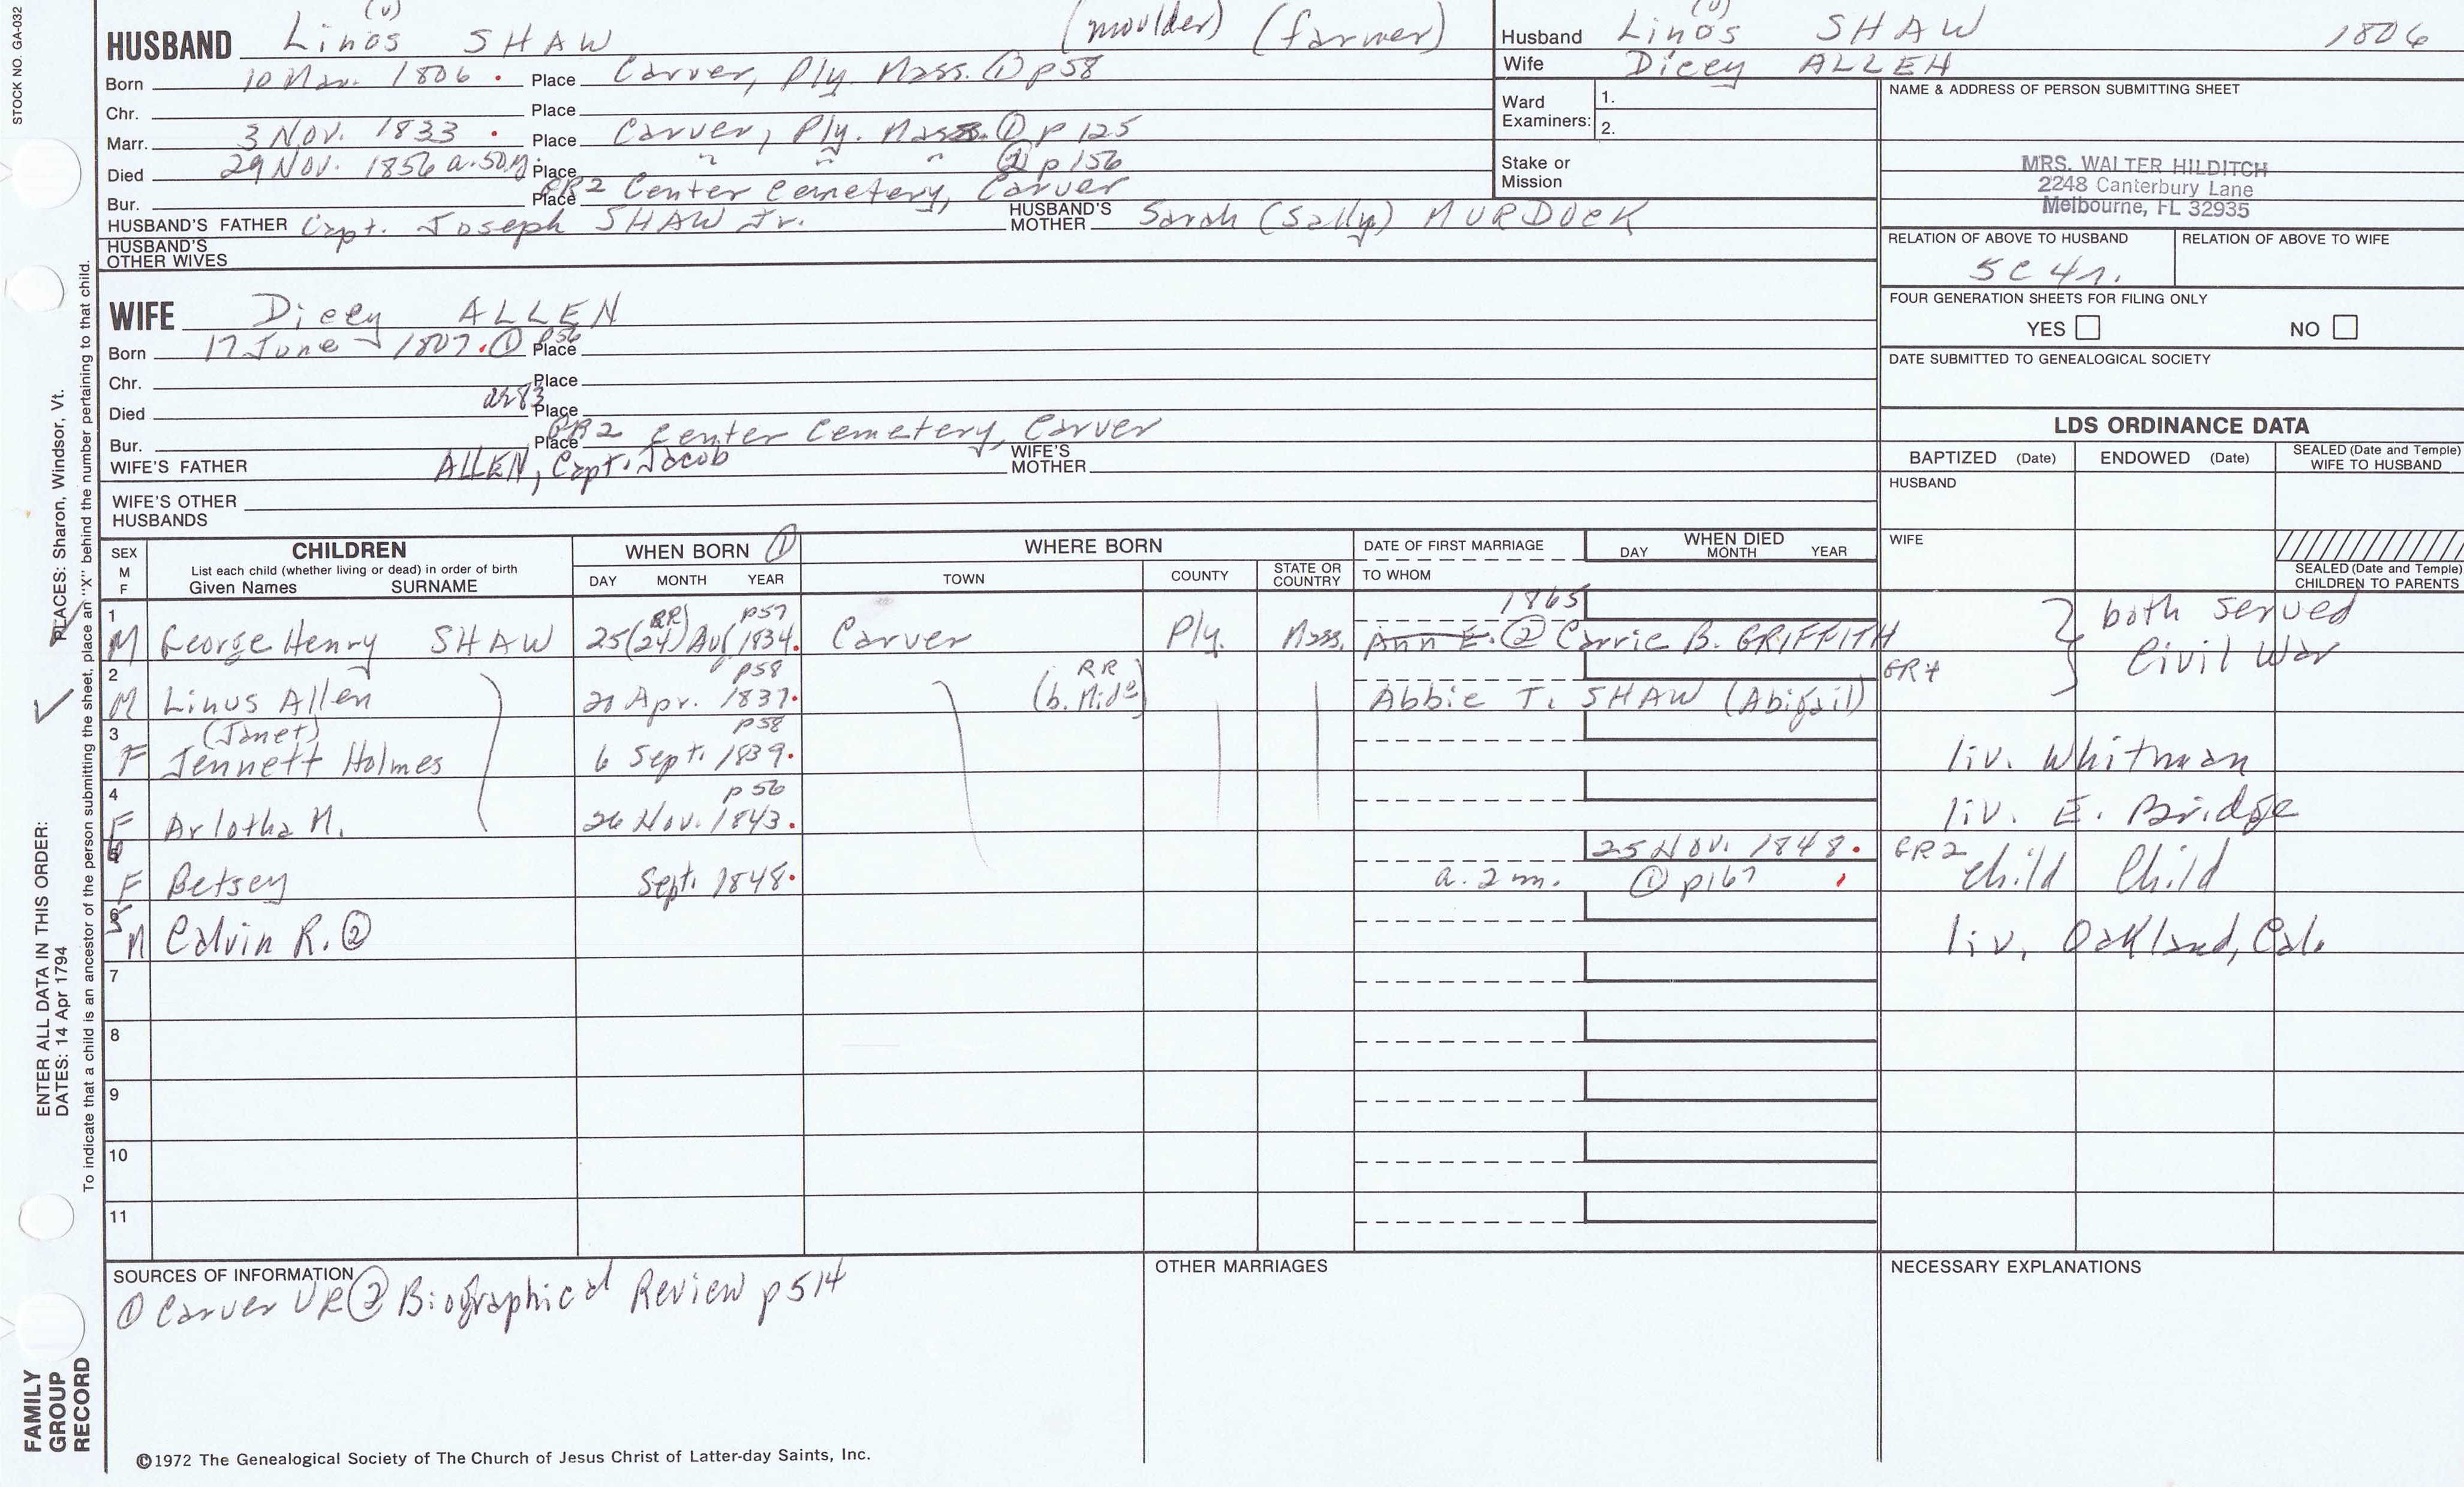 STOCK NO. GA-032
(u)
HUSBAND Linos SHAW (moulder) (farmer)
Born 10 Mar. 1806 . Place Carver, Ply. Mass. ① p58
Chr. Place
Marr. 3 Nov. 1833 . Place Carver, Ply. Mass. ① p 125
Died 29 Nov. 1856 a. 50 y. Place " " " ① p 156
Bur. Place GR2 Center Cemetery, Carver
HUSBAND'S FATHER Capt. Joseph SHAW Jr. HUSBAND'S MOTHER Sarah (Sally) MURDOCK
HUSBAND'S OTHER WIVES
WIFE Dicey ALLEN
Born 17 June 1807 . ① p56 Place
Chr. Place
Died Place
Bur. Place GR2 Center Cemetery, Carver
WIFE'S FATHER ALLEN, Capt. Jacob WIFE'S MOTHER
WIFE'S OTHER HUSBANDS
(u)
Husband Linos SHAW 1806
Wife Dicey ALLEN
Ward Examiners: 1.
2.
Stake or Mission
NAME & ADDRESS OF PERSON SUBMITTING SHEET
MRS. WALTER HILDITCH
2248 Canterbury Lane
Melbourne, FL 32935
RELATION OF ABOVE TO HUSBAND RELATION OF ABOVE TO WIFE
5C 4r.
FOUR GENERATION SHEETS FOR FILING ONLY
YES NO
DATE SUBMITTED TO GENEALOGICAL SOCIETY
LDS ORDINANCE DATA
BAPTIZED (Date) ENDOWED (Date) SEALED (Date and Temple) WIFE TO HUSBAND
HUSBAND
WIFE
SEALED (Date and Temple) CHILDREN TO PARENTS
SEX M F CHILDREN WHEN BORN ① WHERE BORN DATE OF FIRST MARRIAGE WHEN DIED
List each child (whether living or dead) in order of birth
Given Names SURNAME DAY MONTH YEAR TOWN COUNTY STATE OR COUNTRY TO WHOM DAY MONTH YEAR
1 RR) p57 1865
M George Henry SHAW 25(24) Au 1834. Carver Ply. Mass. Ann E. ② Carrie B. GRIFFITH both served
2 p58 RR GR4 Civil War
M Linus Allen 20 Apr. 1837. (b. Midd) Abbie T. SHAW (Abigail)
3 (Janet) p58
F Jennett Holmes 6 Sept. 1839. liv. Whitman
4 p56
F Arlotha M. 26 Nov. 1843. liv. E. Bridge
6 25 Nov. 1848. GR2
F Betsey Sept. 1848. a. 2 m. ① p167 child Child
5 M Calvin R. ② liv. Oakland, Cal.
7
8
9
10
11
SOURCES OF INFORMATION OTHER MARRIAGES NECESSARY EXPLANATIONS
① Carver VR ② Biographical Review p514
©1972 The Genealogical Society of The Church of Jesus Christ of Latter-day Saints, Inc.
ENTER ALL DATA IN THIS ORDER:
PLACES: Sharon, Windsor, Vt.
DATES: 14 Apr 1794
To indicate that a child is an ancestor of the person submitting the sheet, place an "X" behind the number pertaining to that child.
FAMILY
GROUP
RECORD